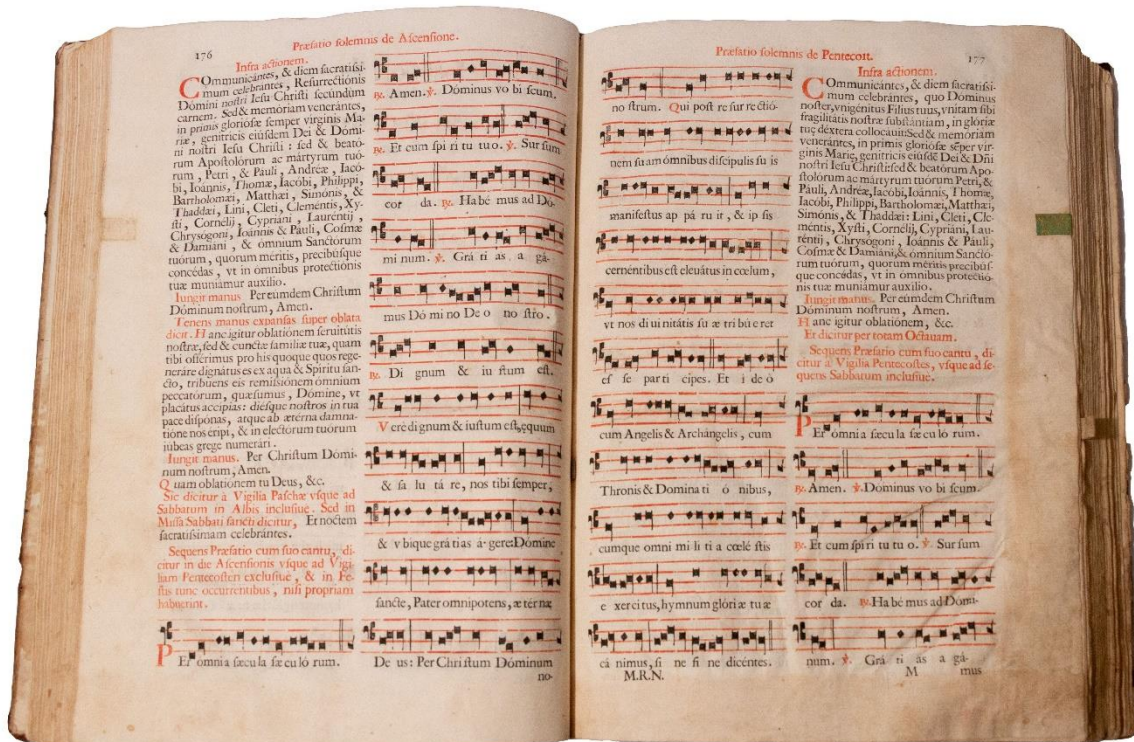 176
Præfatio solemnis de Ascensione.
Infra actionem.
COmmunicántes, & diem sacratissi-
mum celebrántes, Resurrectiónis
Dómini nostri Iesu Christi secúndum
carnem. Sed & memóriam venerántes,
in primis gloriósæ semper virginis Ma-
riæ, genitrícis eiúsdem Dei & Dómi-
ni nostri Iesu Christi : sed & beató-
rum Apostolórum ac mártyrum tuó-
rum, Petri, & Pauli, Andréæ, Iacó-
bi, Ioánnis, Thomæ, Iacóbi, Philíppi,
Bartholomæi, Matthæi, Simónis, &
Thaddæi, Lini, Cleti, Cleméntis, Xy-
sti, Cornélij, Cypriáni, Lauréntij,
Chrysogoni, Ioánnis & Pauli, Cosmæ
& Damiáni, & ómnium Sanctórum
tuórum, quorum méritis, precibúsque
concédas, vt in ómnibus protectiónis
tuæ muniámur auxílio.
Iungit manus. Per eúmdem Christum
Dóminum nostrum, Amen.
Tenens manus expansas super oblata
dicit. Hanc ígitur oblatiónem seruitútis
nostræ, sed & cunctæ famíliæ tuæ, quam
tibi offérimus pro his quoque quos rege-
neráre dignátus es ex aqua & Spíritu san-
cto, tríbuens eis remissiónem ómnium
peccatórum, quæsumus, Dómine, vt
placátus accípias: diésque nostros in tua
pace dispónas, atque ab ætérna damna-
tióne nos éripi, & in electórum tuórum
iúbeas grege numerári.
Iungit manus. Per Christum Dómi-
num nostrum, Amen.
Quam oblatiónem tu Deus, &c.
Sic dicitur à Vigilia Paschæ vsque ad
Sabbatum in Albis inclusiuè. Sed in
Missa Sabbati sancti dicitur, Et noctem
sacratíssimam celebrántes.
Sequens Præfatio cum suo cantu, di-
citur in die Ascensionis vsque ad Vigi-
liam Pentecosten exclusiuè, & in Fe-
stis tunc occurrentibus, nisi propriam
habuerint.
PEr ómni a sæcu la sæ cu ló rum.
℟. Amen. ℣. Dóminus vo bí scum.
℟. Et cum spí ri tu tu o. ℣. Sur sum
cor da. ℟. Ha bé mus ad Dó-
mi num. ℣. Grá ti as a gá-
mus Dó mi no De o no stro.
℟. Di gnum & iu stum est.
Vere di gnum & iustum est, ęquum
& sa lu tá re, nos tibi semper,
& v bique grá tias á- gere: Dómine
sancte, Pater omnípotens, æ tér næ
De us: Per Chri stum Dóminum
no-
Præfatio solemnis de Pentecost.
177
no strum. Qui post re sur re ctió-
nem su am ómnibus discípulis su is
maniféstus ap pá ru it, & ip sis
cernéntibus est eleuátus in cœlum,
vt nos di ui nitátis su æ trí bu e ret
es se par tí cipes. Et í de ó
cum Angelis & Archángelis, cum
Thronis & Domina ti ó nibus,
cumque omni mi lí ti a cœlé stis
e xercitus, hymnum glóri æ tu æ
cá nimus, si ne fi ne dicéntes.
M.R.N.
Infra actionem.
COmmunicántes, & diem sacratíssi-
mum celebrántes, quo Dóminus
noster, vnigénitus Fílius tuus, vnítam sibi
fragilitátis nostræ substántiam, in glóriæ
tuę déxtera collocáuit: Sed & memóriam
venerántes, in primis gloriósæ sẽper vir-
ginis Marię, genitrícis eiúsdẽ Dei & Dñi
nostri Iesu Christi: sed & beatórum Apo-
stolórum ac mártyrum tuórum Petri, &
Pauli, Andréæ, Iacóbi, Ioánnis, Thomæ,
Iacóbi, Philíppi, Bartholomæi, Matthæi,
Simónis, & Thaddæi: Lini, Cleti, Cle-
méntis, Xysti, Cornélij, Cypriáni, Lau-
réntij, Chrysogoni, Ioánnis & Pauli,
Cosmæ & Damiáni, & ómnium Sanctó-
rum tuórum, quorum méritis precibús-
que concédas, vt in ómnibus protectió-
nis tuæ muniámur auxílio.
Iungit manus. Per eúmdem Christum
Dóminum nostrum, Amen.
Hanc ígitur oblatiónem, &c.
Et dicitur per totam Octauam.
Sequens Præfatio cum suo cantu, di-
citur à Vigilia Pentecostes, vsque ad se-
quens Sabbatum inclusiuè.
PEr ómni a sæcu la sæ cu ló rum.
℟. Amen. ℣. Dóminus vo bí scum.
℟. Et cum spí ri tu tu o. ℣. Sur sum
cor da. ℟. Ha bé mus ad Dómi-
num. ℣. Grá ti as a gá-
M mus